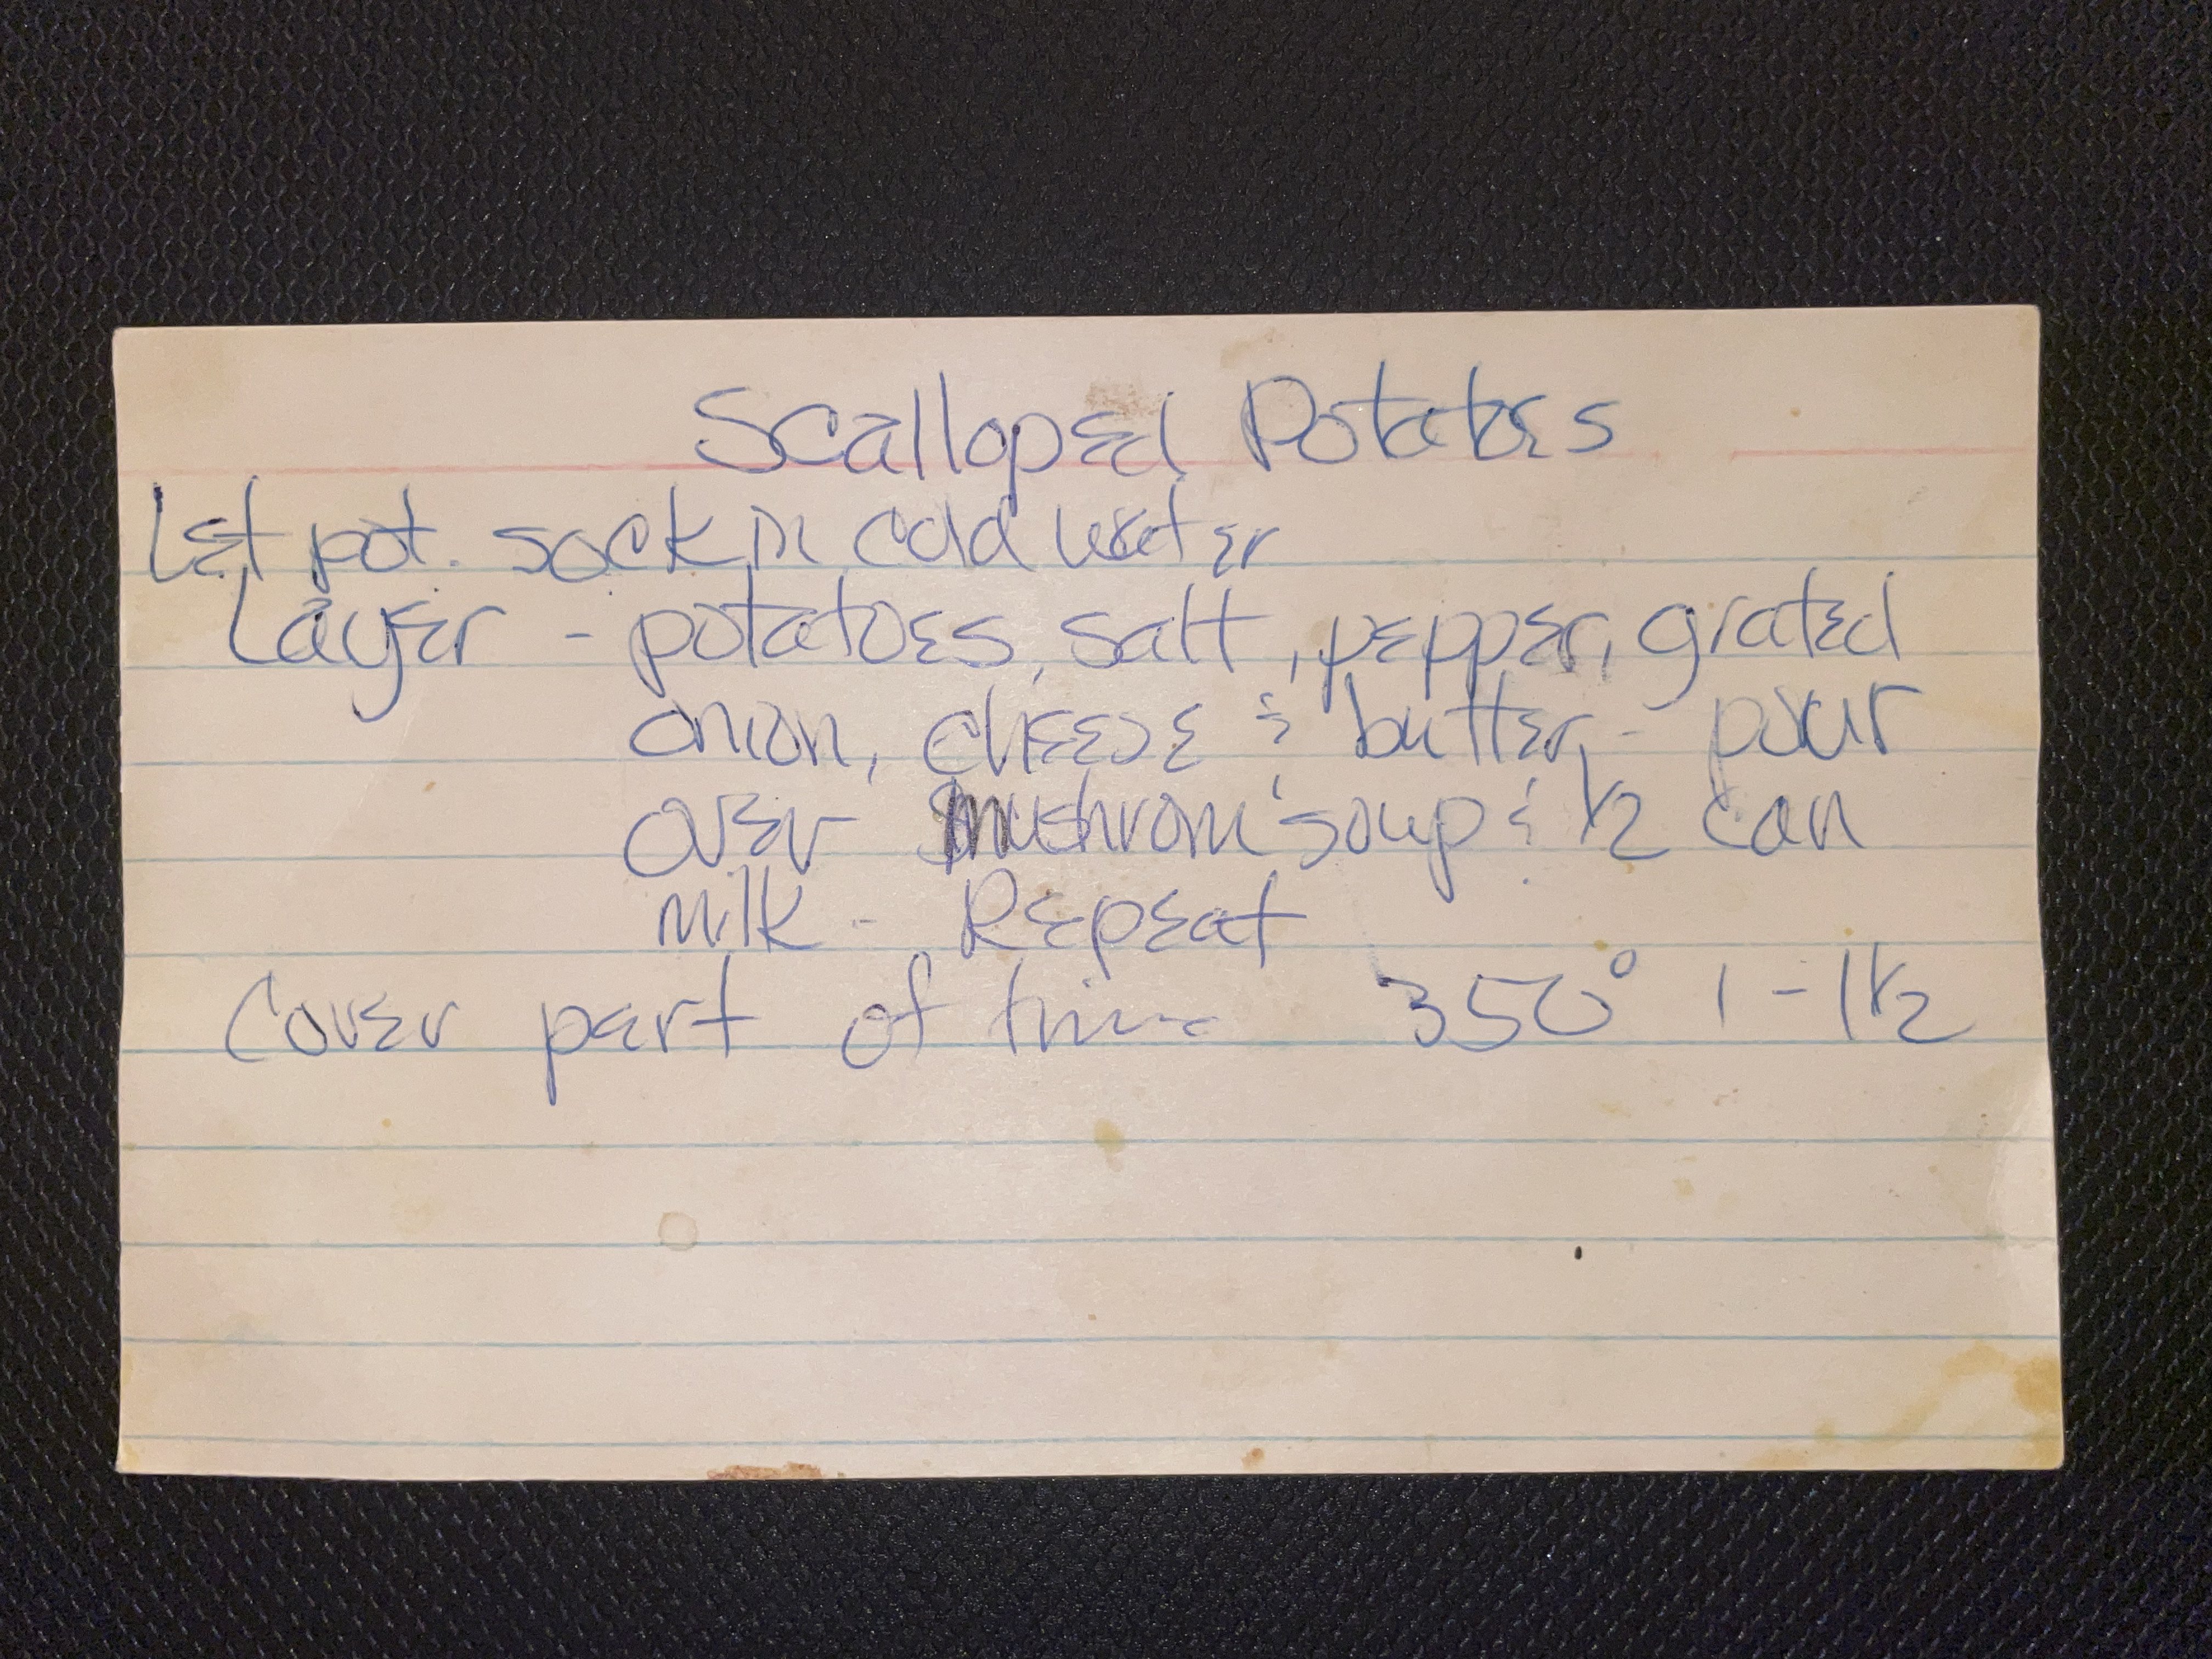 Scalloped Potatoes
Let pot. sock in cold water
Layer - potatoes, salt, pepper, grated
onion, cheese & butter, - pour
over mushrom soup & 1/2 can
milk - Repeat
Cover part of time 350° 1 - 1 1/2